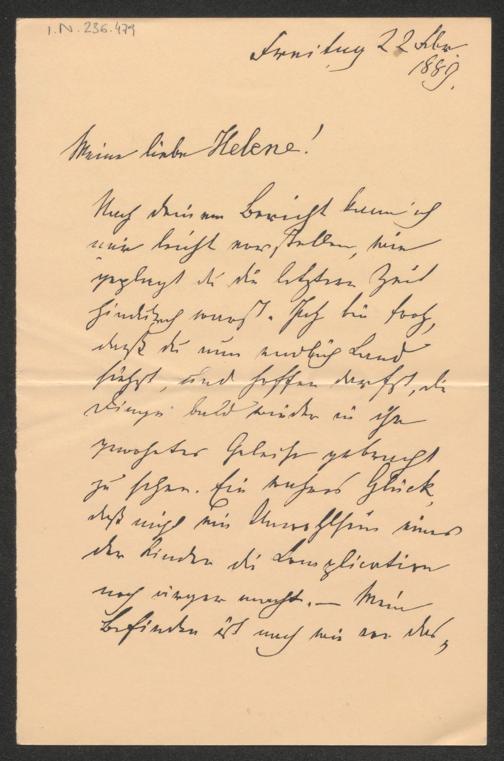 I.N. 236.479
Freitag 22 Febr.
1889.
Meine liebe Helene!
Nach deinem Bericht kann ich
mir leicht vorstellen, wie
geplagt du die letztere Zeit
hindurch warst. Ich bin froh,
daß du nun endlich Land
siehst, und hoffen darfst, die
Dinge bald wieder in ihr
gewohntes Geleise gebracht
zu sehen. Ein wahres Glück,
daß nicht ein Unwohlsein eines
der Kinder die Complication
noch ärger macht. — Mein
Befinden ist nach wie vor das„